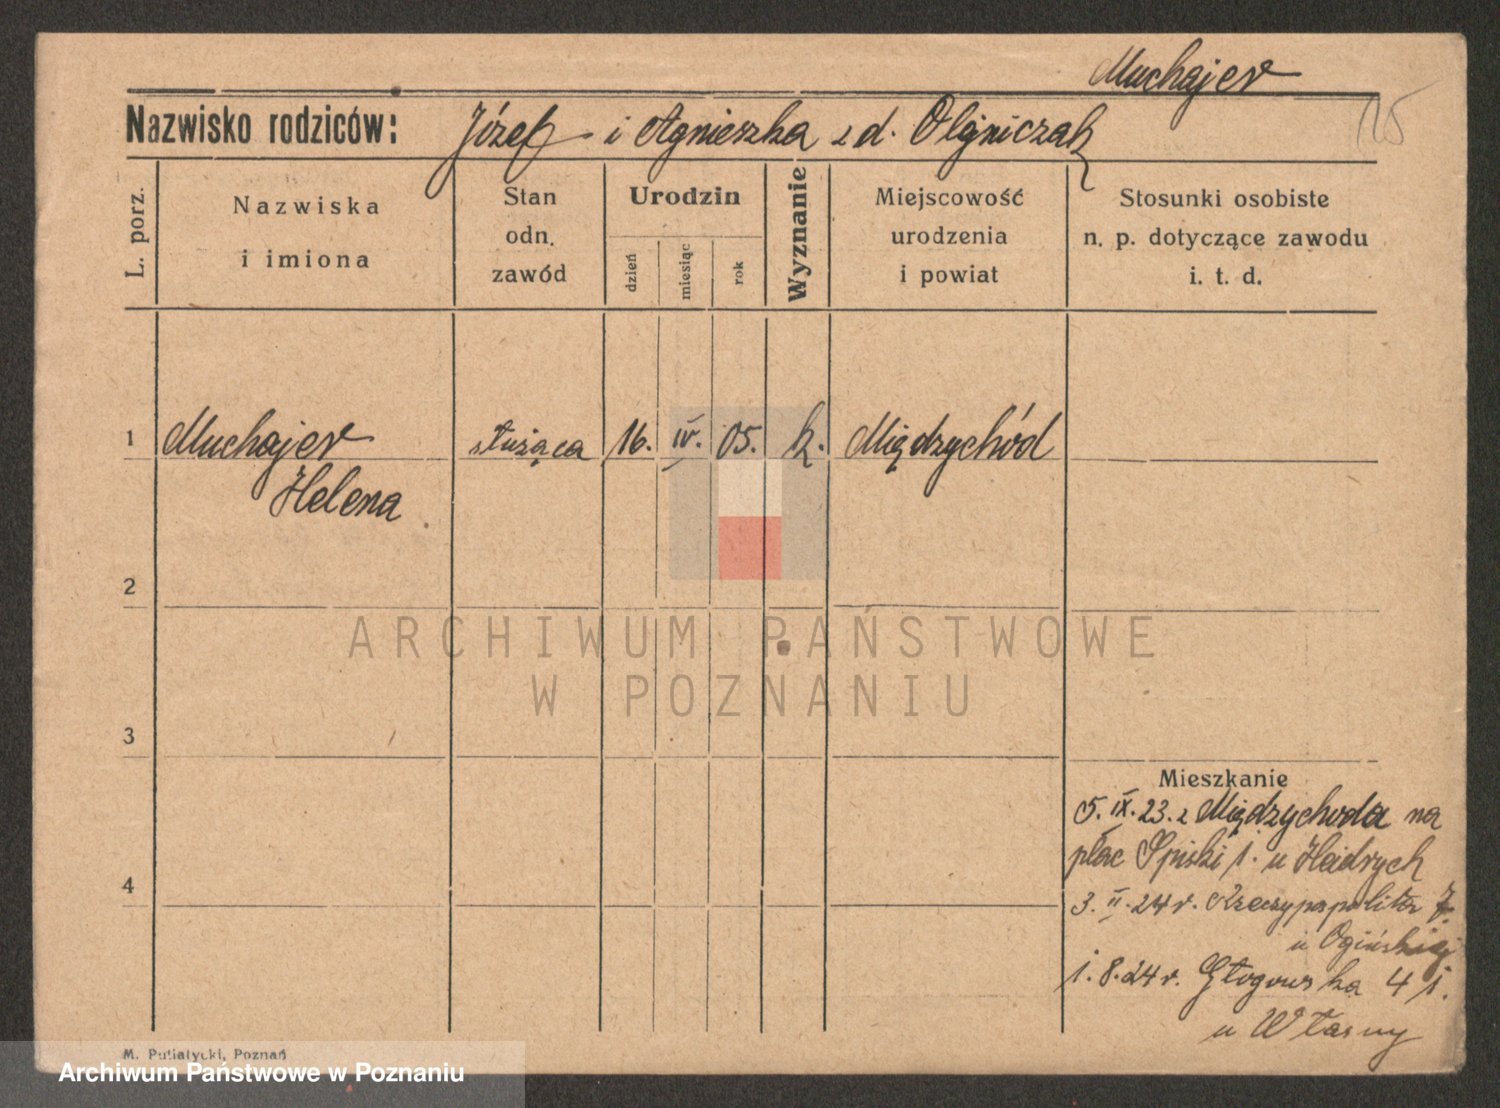 Muchajer
Nazwisko rodziców: Józef i Agnieszka z d. Olejniczak
125
L. porz.
Nazwiska
i imiona
Stan
odn.
zawód
Urodzin
dzień
miesiąc
rok
Wyznanie
Miejscowość
urodzenia
i powiat
Stosunki osobiste
n. p. dotyczące zawodu
i. t. d.
1 Muchajer służąca 16. IV. 05. k. Międzychód
Helena
2
3
4
Mieszkanie
5. IX. 23. z Międzychoda na
plac Spiski 1. u Heidrych
3. II. 24 r. Rzeczypospolitej 7
u Ogińskiej
1. 8. 24 r. Głogowska 41.
u Własny
ARCHIWUM PAŃSTWOWE
W POZNANIU
M. Putiatycki, Poznań
Archiwum Państwowe w Poznaniu